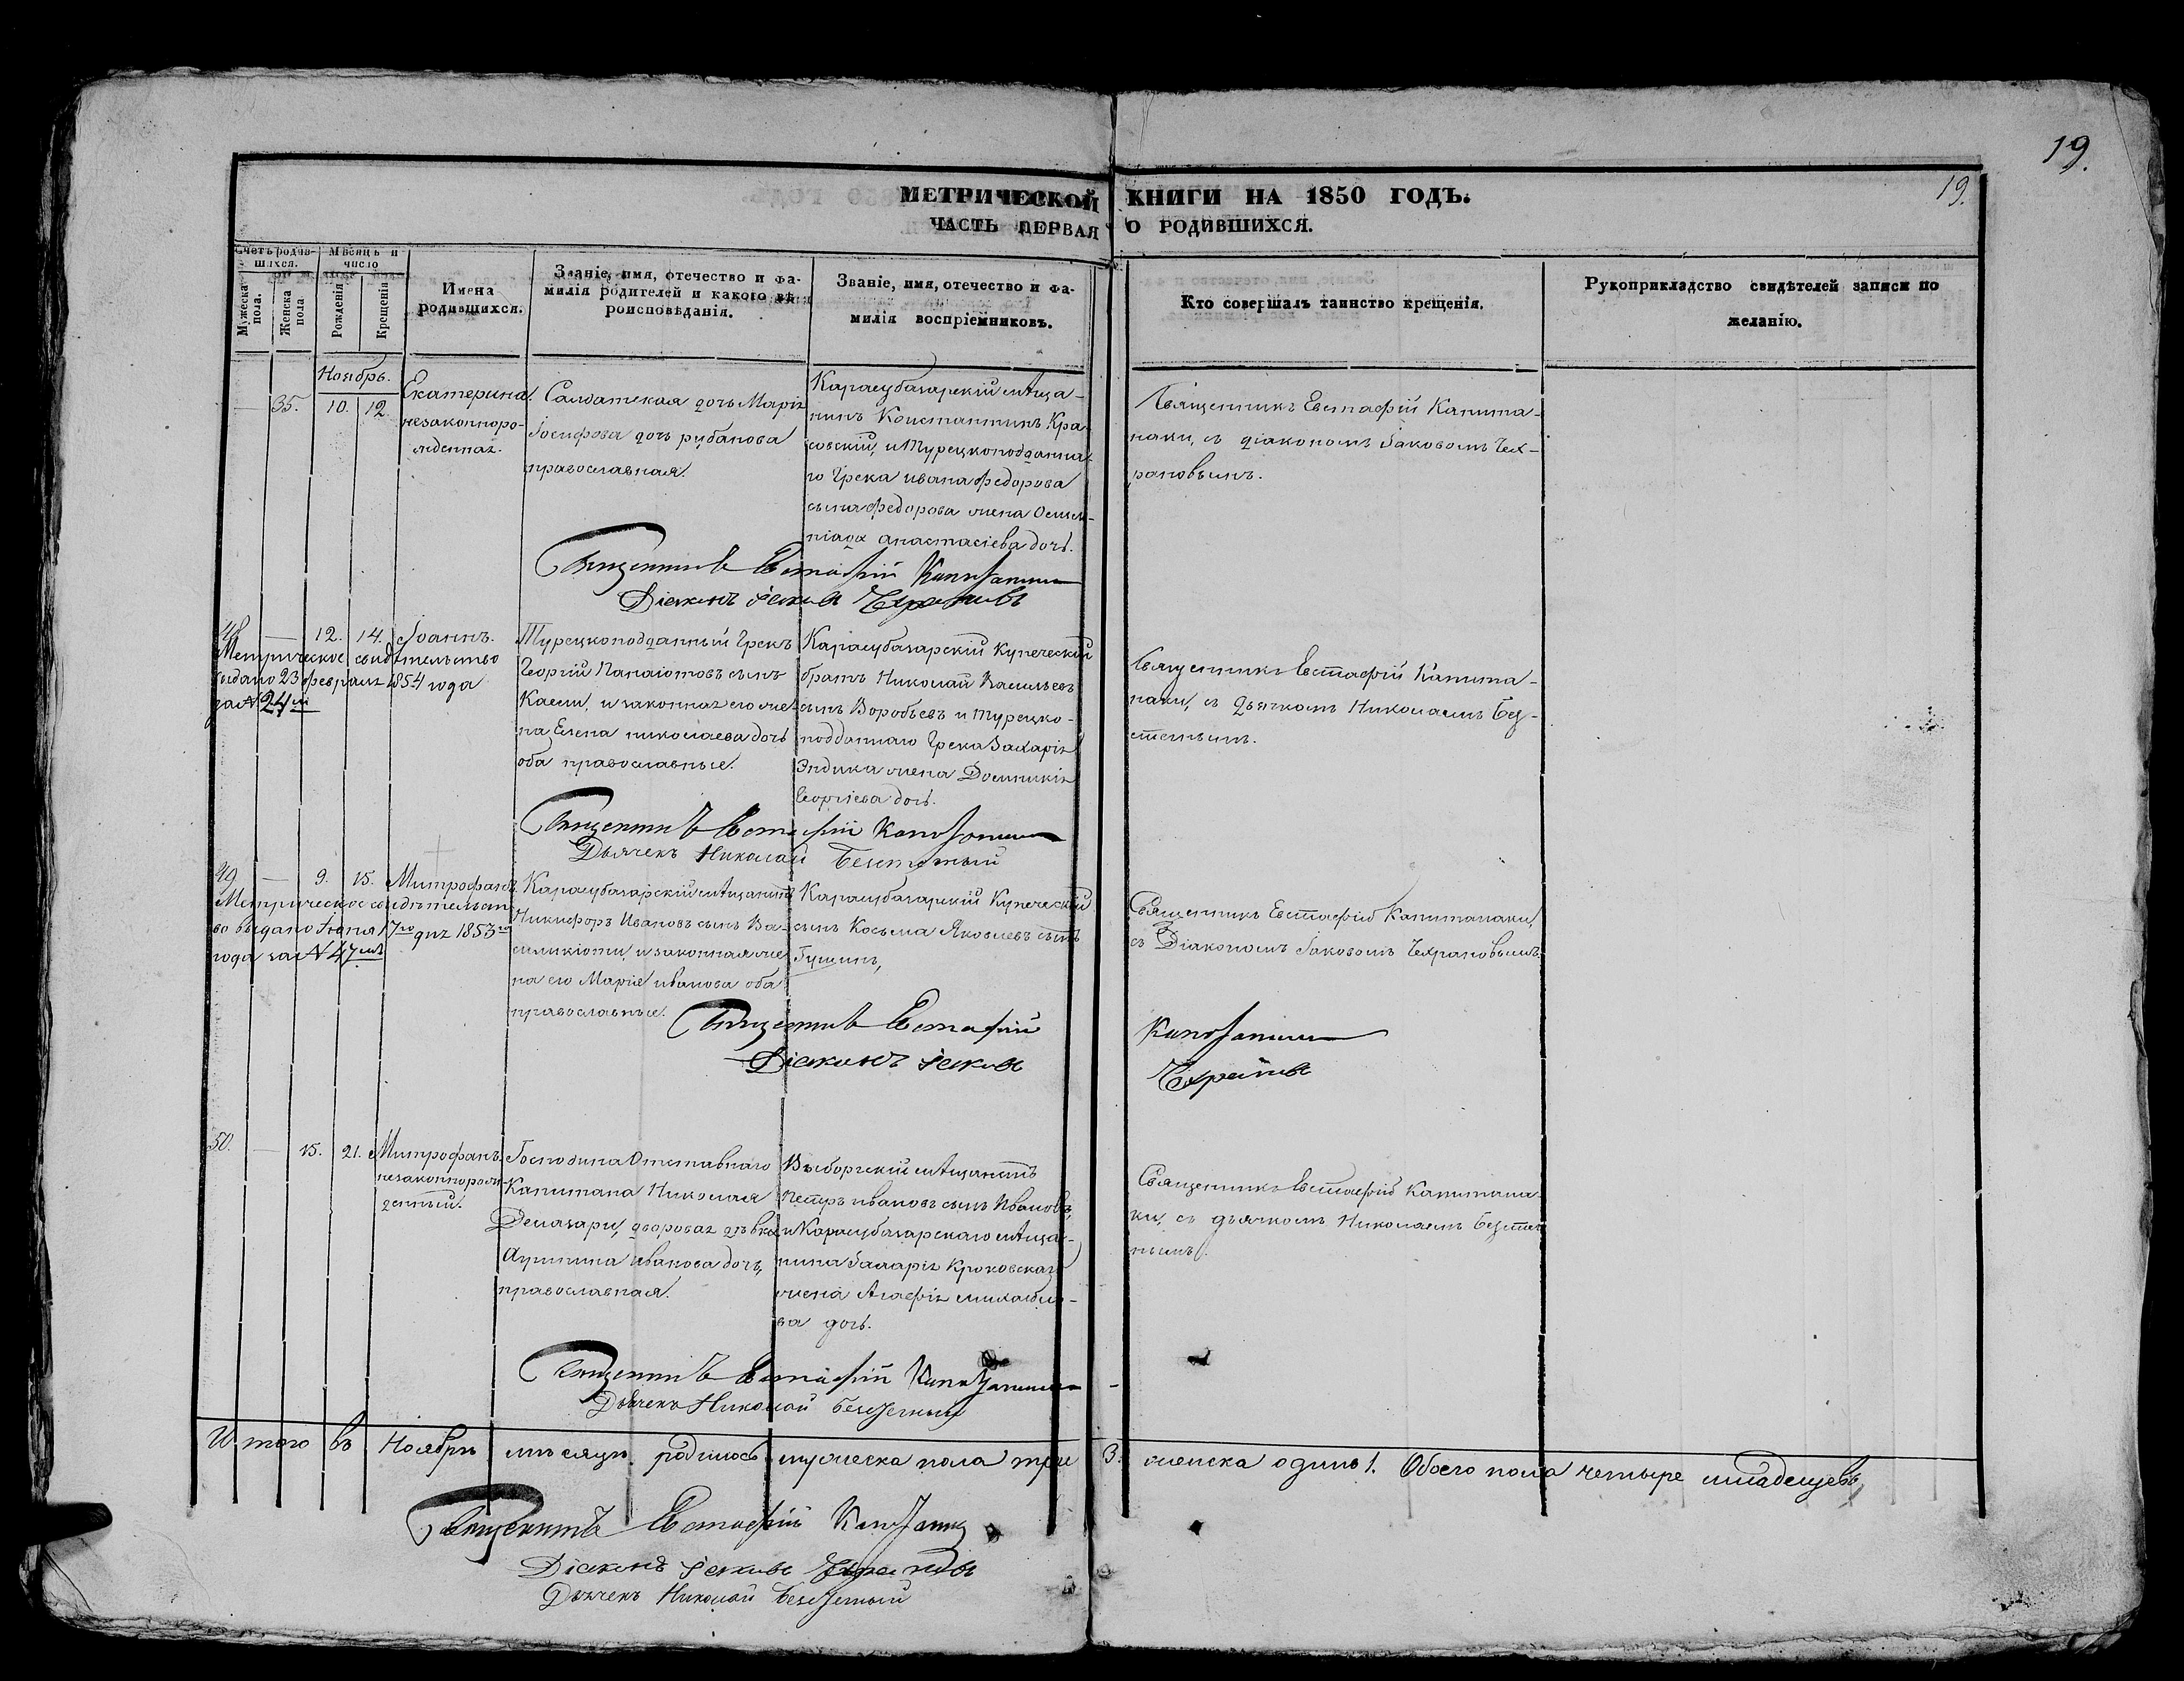 19.
19.
МЕТРИЧЕСКОЙ КНИГИ НА 1850 ГОДЪ.
ЧАСТЬ ПЕРВАЯ О РОДИВШИХСЯ.
Счетъ родив-
шихся.
Мѣсяцъ и
число
Мужеска
пола.
Женска
пола
Рожденія
Крещенія
Имена
родившихся.
Званіе, имя, отечество и фа-
милія родителей и какого вѣ-
роисповѣданія.
Званіе, имя, отечество и фа-
милія воспріемниковъ.
Кто совершалъ таинство крещенія.
Рукоприкладство свидѣтелей записи по
желанію.
Ноябрь.
— 35. 10. 12.
Екатерина
незаконноро-
жденная.
Салдатская дочь Марія
Іосифова дочь рубанова
православная.
Карасубазарскій мѣща-
нинъ Константинъ Кра-
совскій, и Турецкоподданна-
го Грека ивана федорова
сына федорова жена
анастасіева дочь.
Священникъ Евстафій Капита-
наки, съ діакономъ Іаковомъ Чех-
рановымъ.
Священникъ Евстафій Капитанаки
Діаконъ Іаковъ Чехрановъ
48 — 12. 14. Іоаннъ.
Метрическое свидѣтельство
выдано 23 февраля 1854 года
за № 24м
Турецкоподданный Грекъ
Георгій Панаіотовъ сынъ
и законная его же-
на Елена николаева дочь
оба православные.
Карасубазарскій Купеческій
братъ Николай Васильевъ
сынъ Воробьевъ и турецко-
подданнаго Грека Захарія
Эндика жена Доминикія
Георгіева дочь.
Священникъ Евстафій Капита-
наки, съ дьячкомъ Николаемъ Без-
стенымъ.
Священникъ Евстафій Капитанаки
Дьячекъ Николай
49 — 9. 15. Митрофанъ.
Метрическое свидѣтельст-
во выдано Іюня 17го дня 1853го
года за № 47мъ
Карасубазарскій мѣщанинъ
Никифоръ Ивановъ сынъ Ва-
силикіоти, и законная же-
на его Марія иванова оба
православные.
Карасубазарскій Купеческій
сынъ Косьма Яковлевъ сынъ
Гущинъ,
Священникъ Евстафій Капитанаки,
съ Діакономъ Іаковомъ Чехрановымъ.
Священникъ Евстафій Капитанаки
Діаконъ Іаковъ Чехрановъ
50. — 15. 21. Митрофанъ.
незаконнорож-
денный.
Господина Отставнаго
Капитана Николая
дворовая дѣвка
иванова дочь,
православная.
Выборгскій мѣщанинъ
петръ ивановъ сынъ Ивановъ,
и Карасубазарскаго мѣща-
нина
жена Агафія михайло-
ва дочь.
Священникъ Евстафій Капитана-
ки, съ дьячкомъ Николаемъ Безсте-
нымъ.
Священникъ Евстафій Капитанаки
Дьячекъ Николай
Итого въ Ноябрѣ мѣсяцѣ родилось мужеска пола три 3. женска одинъ 1. Обоего пола четыре младенцевъ
Священникъ Евстафій Капитанаки
Діаконъ Іаковъ Чехрановъ
Дьячекъ Николай